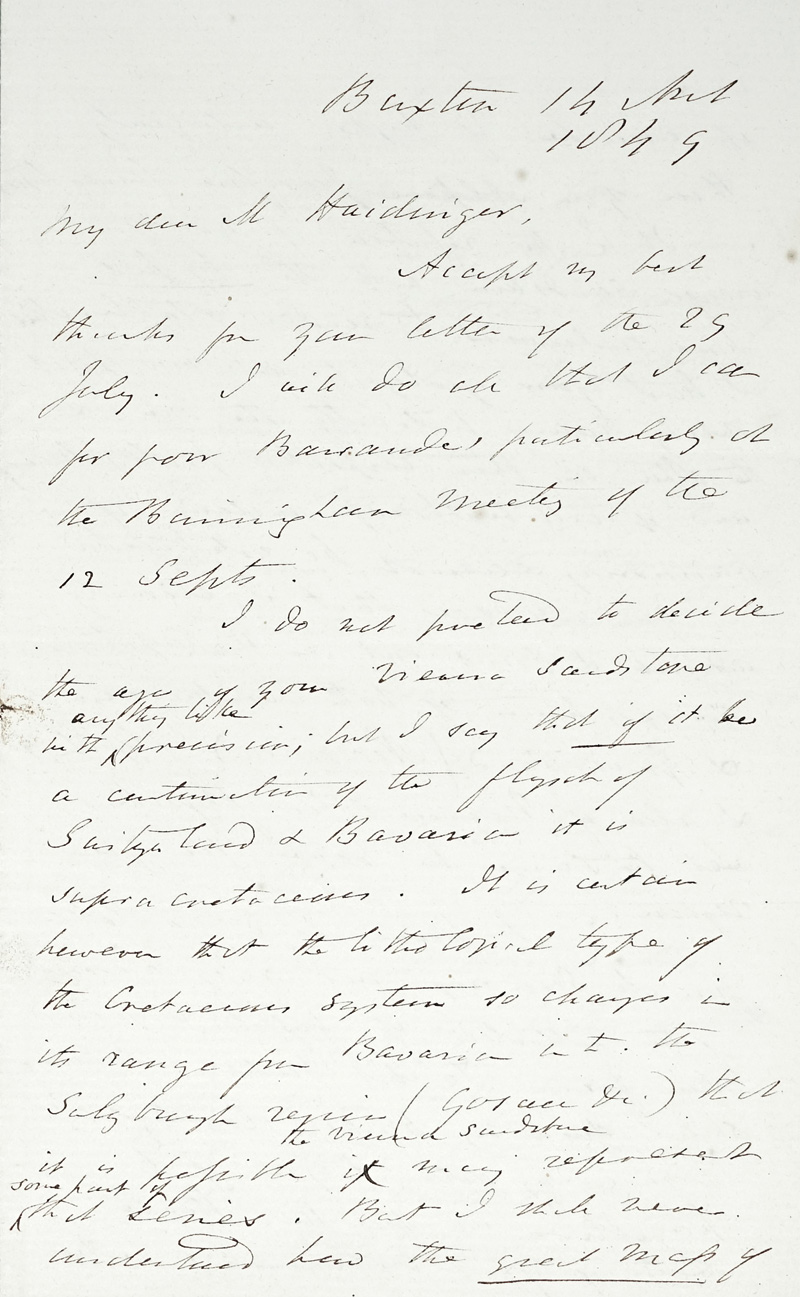 Buxton 14 Aust
1849
My dear M Haidinger,
Accept my best
thanks for your letter of the 29
July. I will do all that I can
for poor Barrandes particularly at
the Birmingham Meeting of the
12 Septr.
I do not pretend to decide
the age of your Vienna Sandstone
with anything like precision; but I say that if it be
a continuation of the flysch of
Switzerland & Bavaria it is
supra cretaceous. It is certain
however that the lithological type of
the Cretaceous System so changes in
its range from Bavaria into the
Salzbourgh region (Gosau &c.) that
it is possible the Vienna Sandstone may represent
some part of that Series. But I shall never
understand how the great mass of